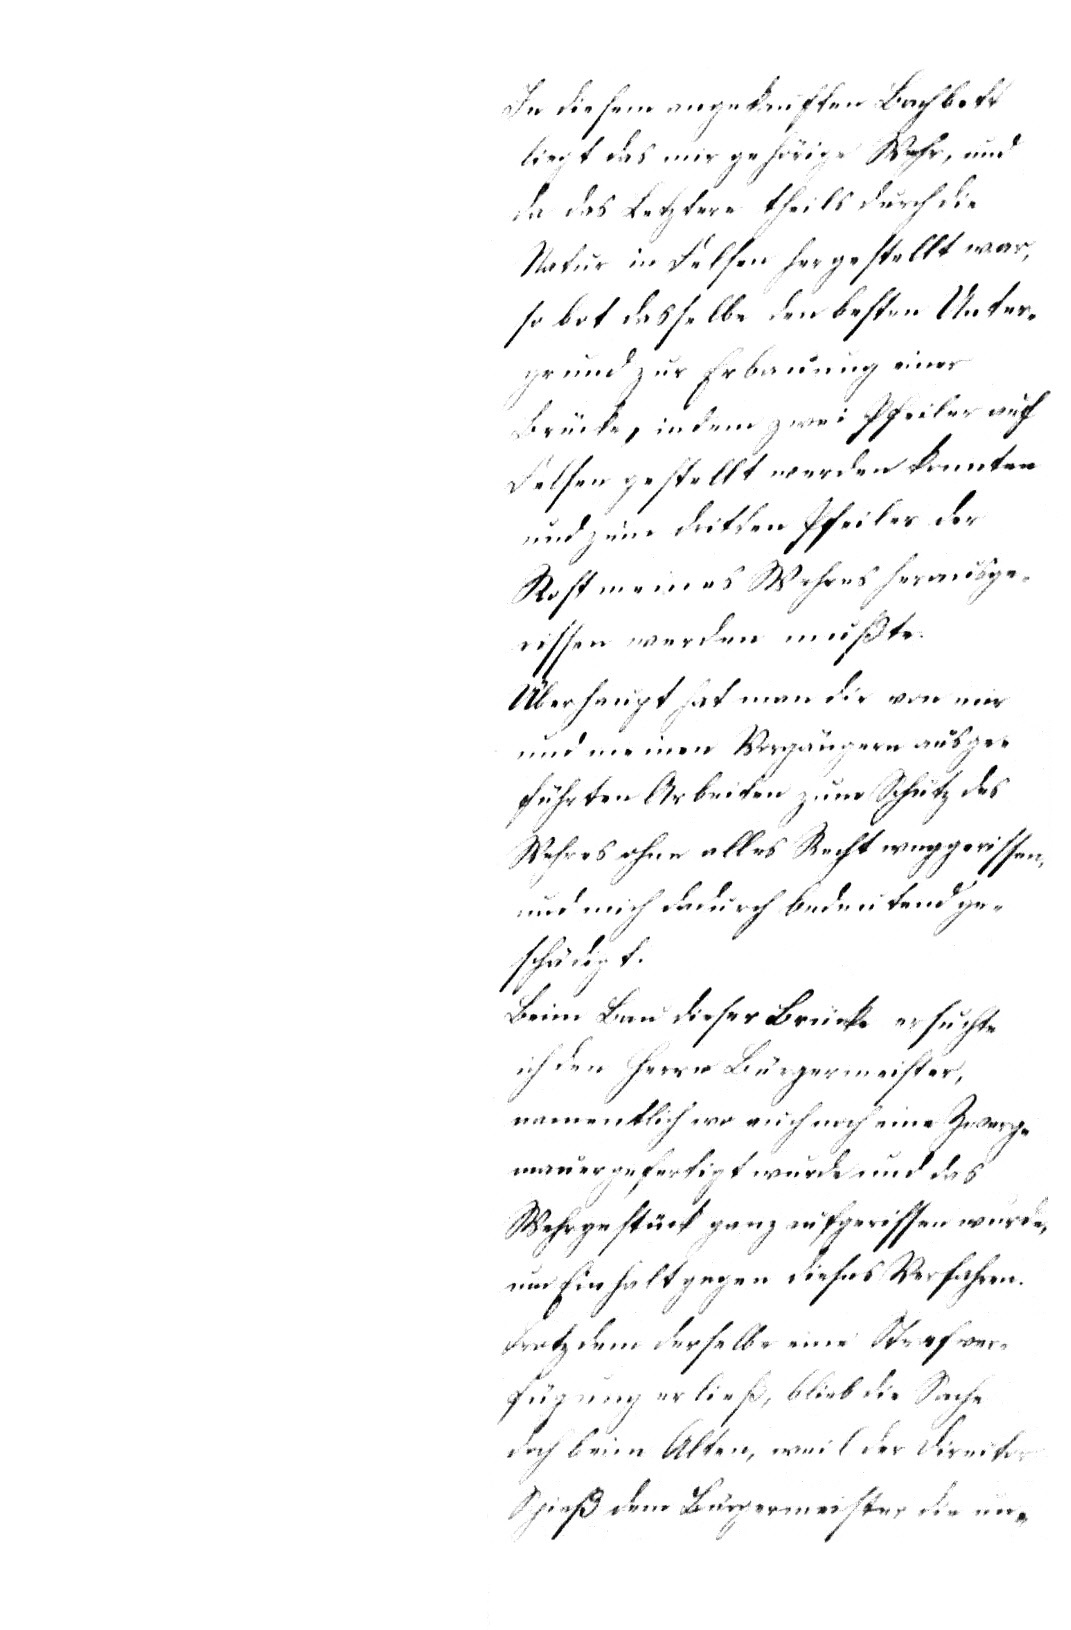 In diesem angekauften Bachbett
liegt das mir gehörige Wehr, und
da das Letztere theils durch die
Natur in Felsen hergestellt war,
so bot dasselbe den besten Unter-
grund zur Erbauung einer
Brücke, indem zwei Pfeiler auf
Felsen gestellt werden konnten
und zum dritten Pfeiler der
Rost meines Wehres herausge-
rissen werden mußte.
Überhaupt hat man die von mir
und meinen Vorgängern ausge-
führten Arbeiten zum Schutz des
Wehres ohne alles Recht weggerissen,
und mich dadurch bedeutend ge-
schädigt.
Beim Bau dieser Brücke ersuchte
ich den Herrn Bürgermeister,
namentlich wo auch noch eine Zwerg-
mauer gefertigt wurde und das
Wehrgestück ganz aufgerissen wurde,
um Einhalt gegen dieses Verfahren.
Trotzdem derselbe eine Strafver-
fügung erließ, blieb die Sache
doch beim Alten, weil der Director
Spieß dem Bürgermeister die un-